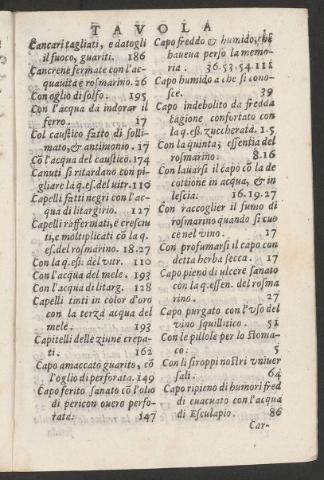 TAVOLA
Cancari tagliati, e datogli
il fuoco, guariti. 186
Cancrene fermate con l'ac-
quauita e rosmarino. 26
Con oglio di solfo. 195
Con l'acqua da indorar il
ferro. 17
Col caustico fatto di solli-
mato, & antimonio. 17
Cõ l'acqua del caustico. 174
Canuti si ritardano con pi-
gliare la q.es. del uitr. 110
Capelli fatti negri con l'ac-
qua di litargirio. 127
Capelli raffermati, è cresciu
ti, e moltiplicati cõ la q.
es. del rosmarino. 18.27
Con la q.es. del uitr. 110
Con l'acqua del mele. 193
Con l'acqua di litarg. 128
Capelli tinti in color d'oro
con la terza acqua del
mele. 193
Capitelli delle zinne crepa-
ti. 162
Capo amaccato guarito, cõ
l'oglio di perforata. 149
Capo ferito sanato cõ l'olio
di pericon ouero perfo-
rata. 147
Capo freddo & humido, che
haueua perso la memo-
ria. 36.53.54.111
Capo humido a che si cono-
sce. 39
Capo indebolito da fredda
cagione confortato con
la q.es. zuccherata. 1.5
Con la quinta essentia del
rosmarino. 8.16
Con lauarsi il capo cõ la de
cottione in acqua, & in
lescia. 16.19.27
Con raccoglier il fumo di
rosmarino quando si cuo
ce nel uino. 17
Con profumarsi il capo con
detta herba secca. 17
Capo pieno di ulcere sanato
con la q.essen. del rosma
rino. 27
Capo purgato con l'vso del
vino squillitico. 51
Con le pillole per lo stoma-
co. 5
Con li siroppi nostri vniuer
sali. 64
Capo ripieno di humori fred
di euacuato con l'acqua
di Esculapio. 86
Car-